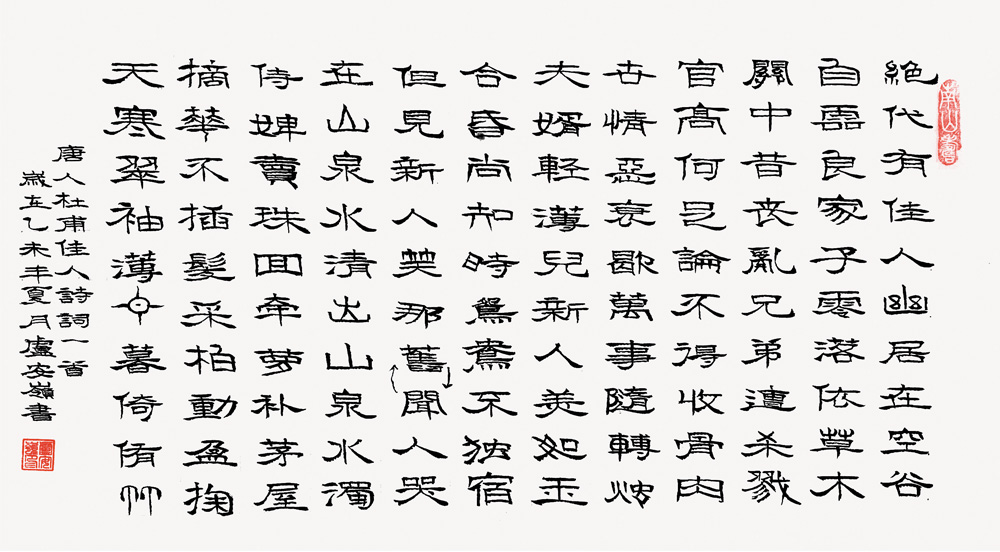 絕代有佳人幽居在空谷
自雲良家子零落依草木
關中昔喪亂兄弟遭杀戮
官高何足論不得收骨肉
世情惡衰歇萬事隨轉烛
夫婿輕薄兒新人美如玉
合昏尚知時鴛鴦不独宿
但見新人笑那舊聞人哭
在山泉水清出山泉水濁
侍婢賣珠回牽萝补茅屋
摘華不插髮采柏動盈掬
天寒翠袖薄日暮倚脩竹
唐人杜甫佳人詩詞一首
歲在乙未年夏月盧安嶺書